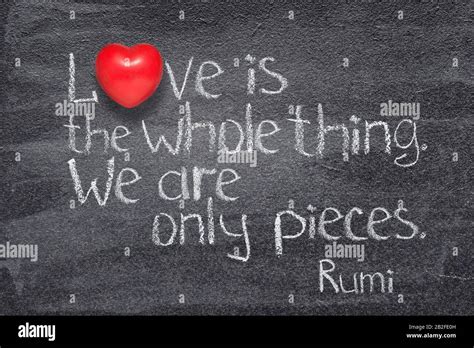 Love is
the whole thing.
We are
only pieces.
Rumi
alamy
alamy
alamy
alamy
alamy
Image ID: 2B2FE0H
www.alamy.com